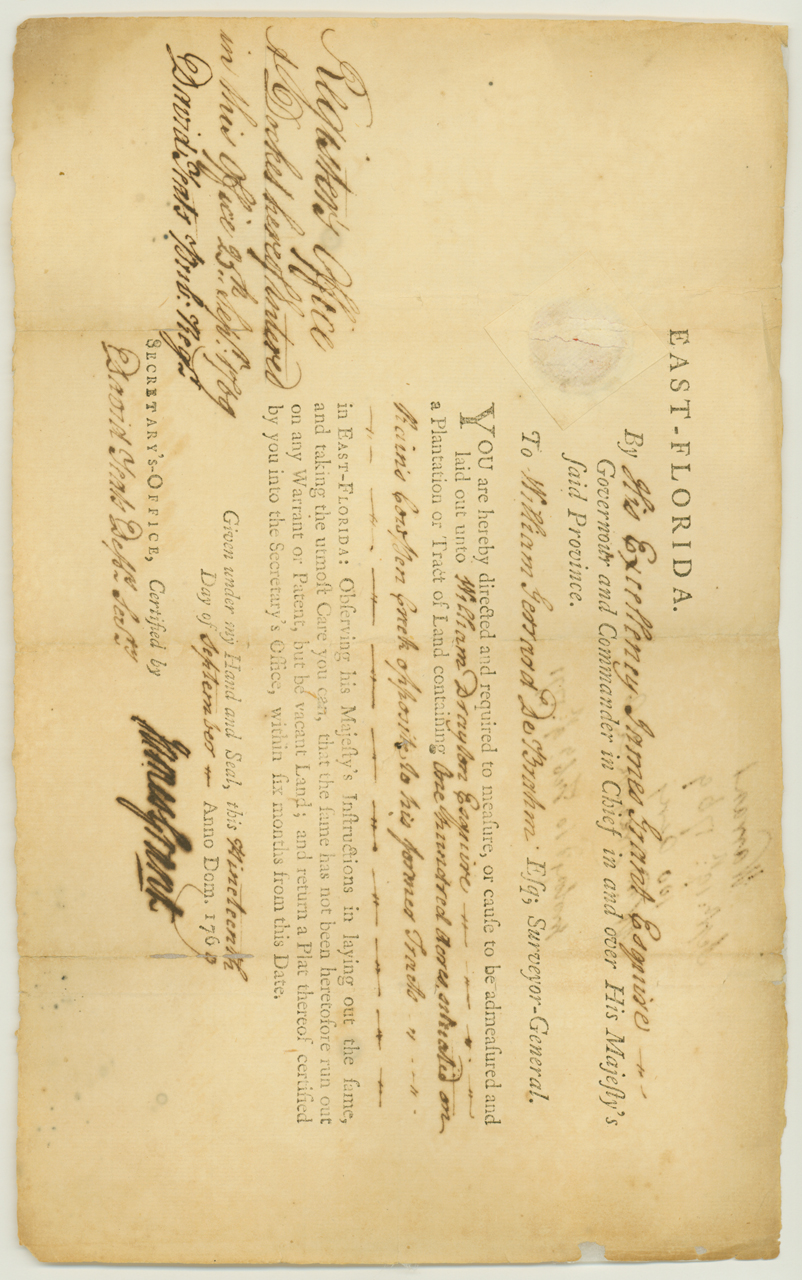 EAST-FLORIDA.
By His Excellency James Grant Esquire
Governour and Commander in Chief in and over His Majeſty's
ſaid Province.
To William Gerrard De Brahm Eſq; Surveyor-General.
YOU are hereby directed and required to meaſure, or cauſe to be admeaſured and
laid out unto William Drayton Esquire
a Plantation or Tract of Land containing One hundred acres situated on
Cowpen Creek opposite to his former Tract
in EAST-FLORIDA: Obſerving his Majeſty's Inſtructions in laying out the ſame,
and taking the utmoſt Care you can, that the ſame has not been heretofore run out
on any Warrant or Patent, but be vacant Land; and return a Plat thereof certified
by you into the Secretary's Office, within ſix months from this Date.
Given under my Hand and Seal, this Nineteenth
Day of September Anno Dom. 1769
James Grant
SECRETARY'S-OFFICE, Certified by
David Yeats Depy. Secry.
Register's Office
A Docket hereof Entered
in this Office 23th Sepr. 1769
David Yeats Regr.